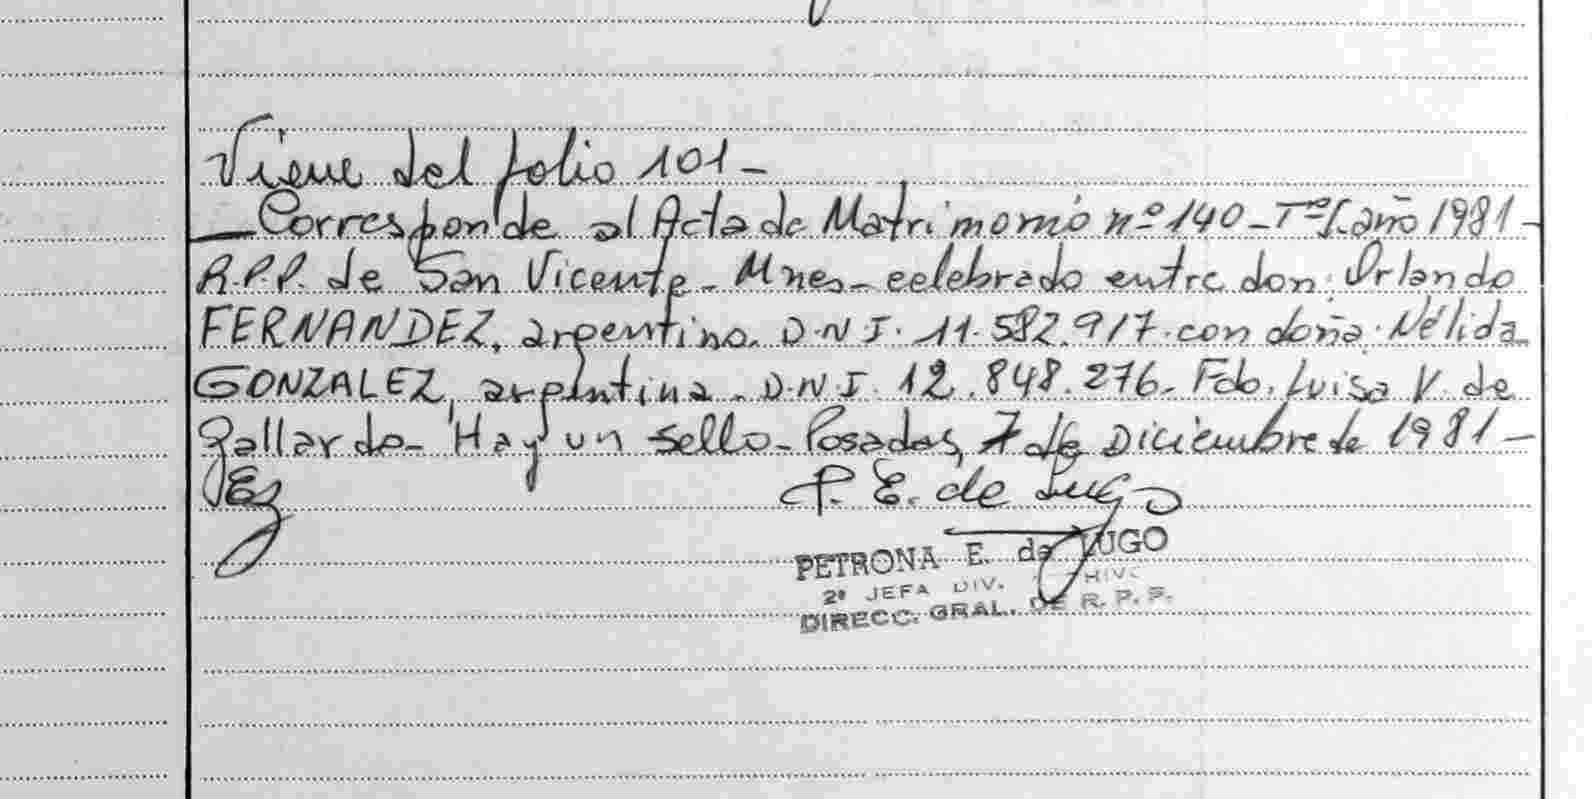 Viene del folio 101-
Corresponde al Acta de Matrimonio nº 140-Tº I. año 1981-
R.P.P. de San Vicente- Mnes- celebrado entre don: Orlando
FERNANDEZ, argentino. D.N.I. 11.582.917. con doña: Nélida
GONZALEZ, argentina. D.N.I. 12.848.276- Fdo. Luisa V. de
Gallardo- Hay un sello- Posadas, 7 de Diciembre de 1981-
P. E. de Lugo
PETRONA E. de LUGO
2º JEFA DIV.
DIRECC. GRAL. DE R. P. P.